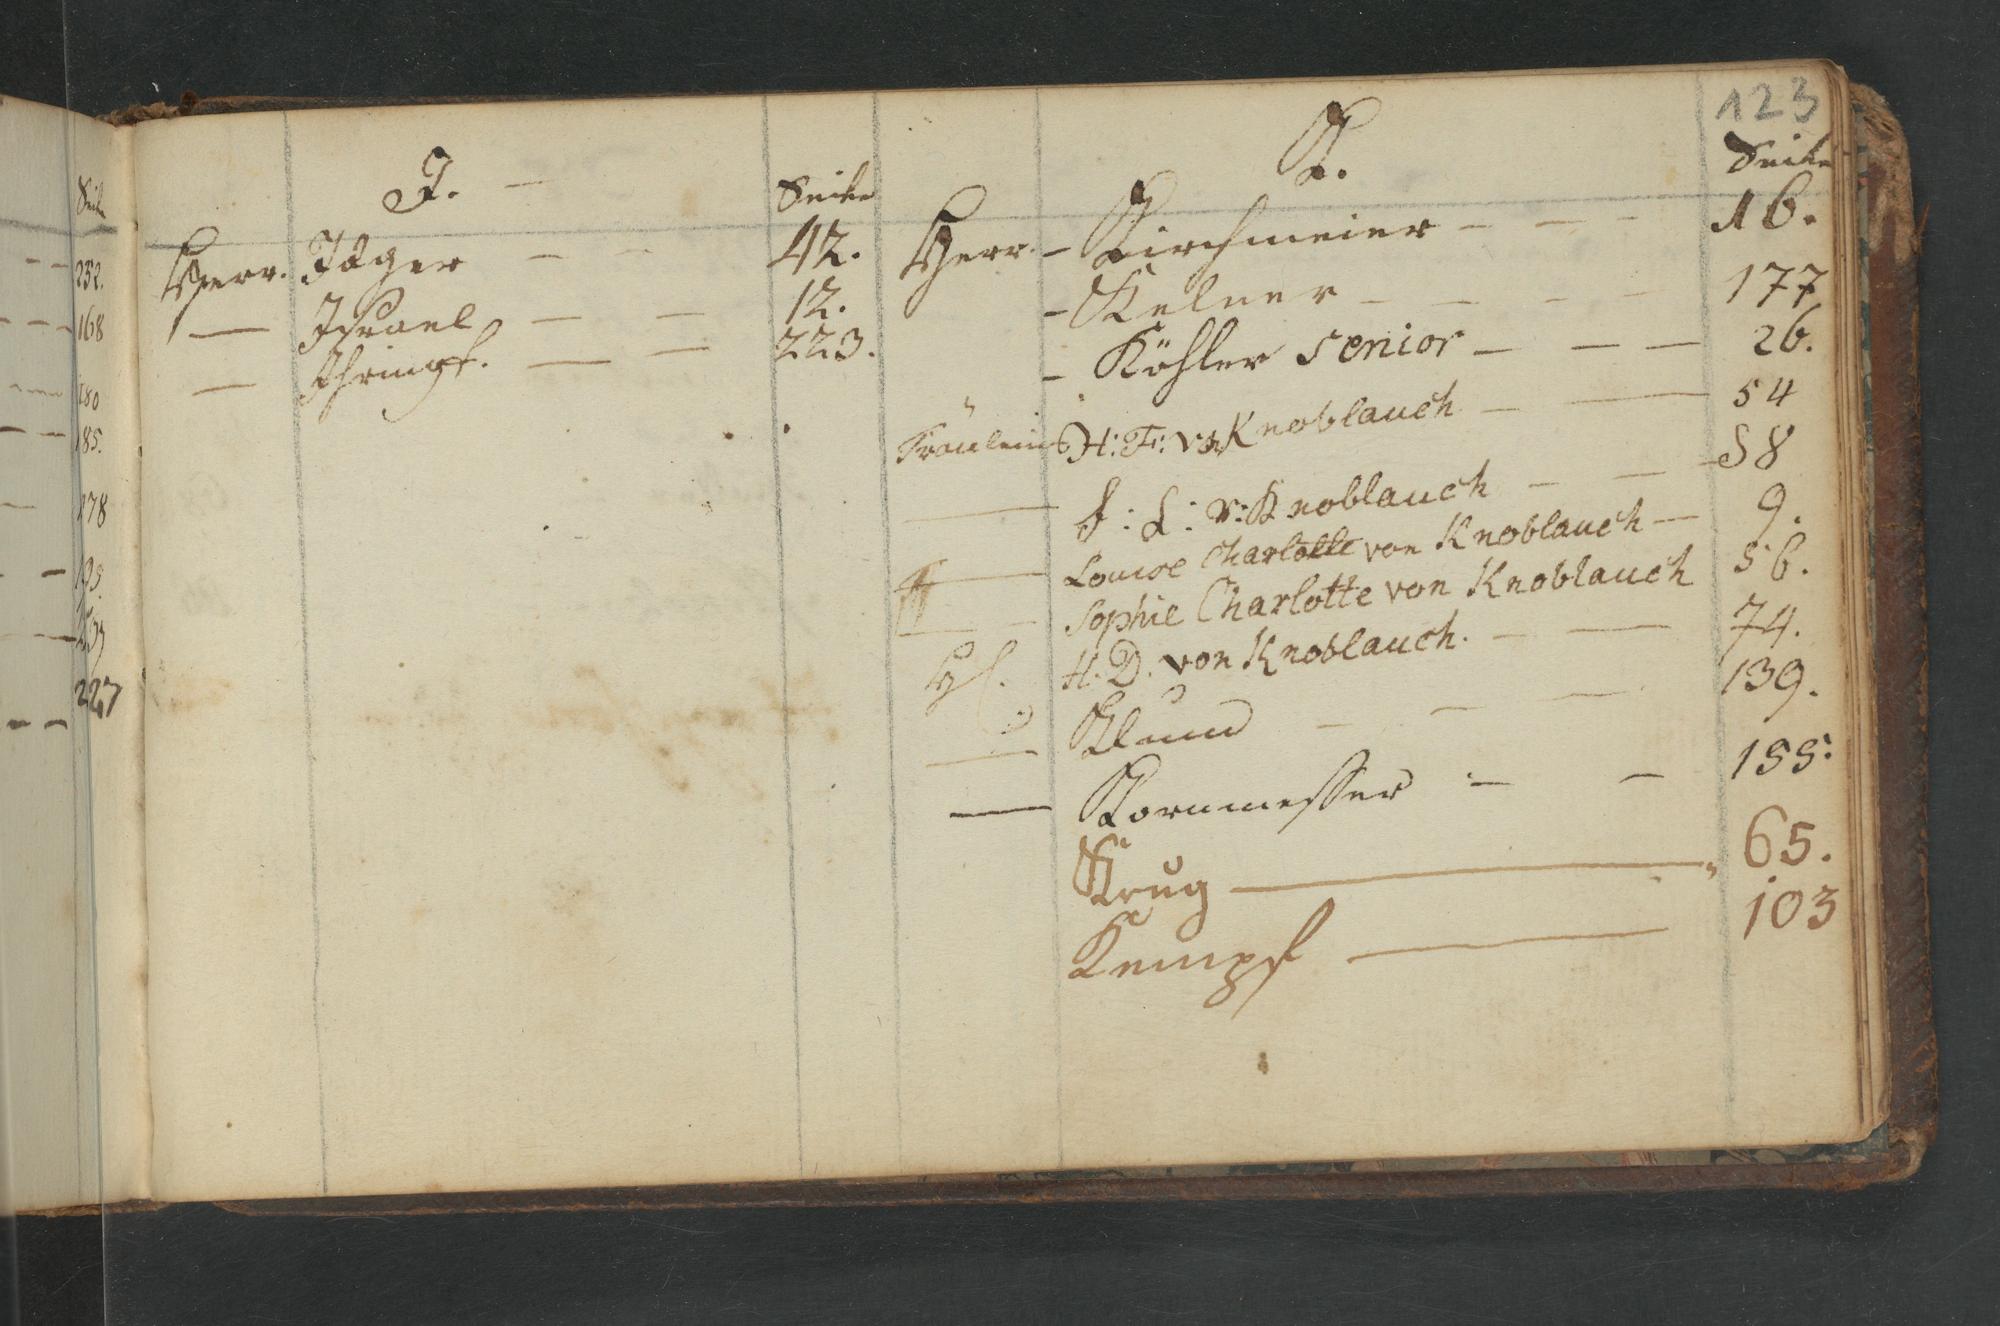 123
J. —
Seite
Herr. Jäger — — 42.
— Israel — — 12.
— — — 223.
K.
Seite
Herr. – Kirchmeier – – – 16.
– Kelner – – – – 177
– Köhler senior – – – 26.
Fräulein H: F: v: Knoblauch – — 54
— F: L: v: Knoblauch – – – 58
— Louise Charlotte von Knoblauch — 9.
— – Sophie Charlotte von Knoblauch 56.
H. D. von Knoblauch. – — 74.
— Klund – – – 139.
— Kornmesser – – 155.
Krug — 65.
Kempf — 103
Seite
252.
168
180
185.
178
227